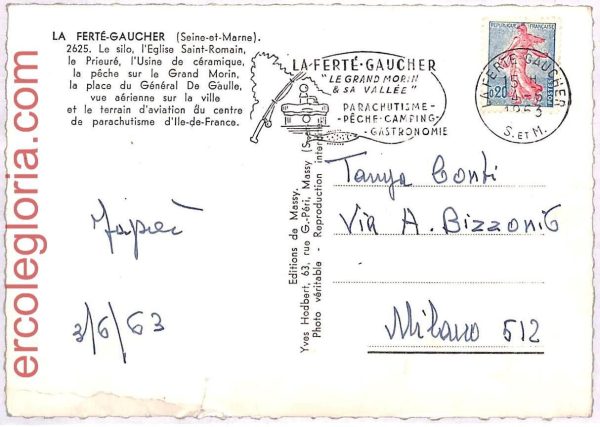 LA FERTÉ-GAUCHER (Seine-et-Marne).
2625. Le silo, l'Eglise Saint-Romain,
le Prieuré, l'Usine de céramique,
la pêche sur le Grand Morin,
la place du Général De Gaulle,
vue aérienne sur la ville
et le terrain d'aviation du centre
de parachutisme d'Ile-de-France.
LA FERTÉ-GAUCHER
"LE GRAND MORIN
& SA VALLÉE"
PARACHUTISME-
-PÊCHE-CAMPING-
-GASTRONOMIE
REPUBLIQUE FRANÇAISE
0,20
POSTES
LA FERTE-GAUCHER
S. ET M.
Editions de Massy.
Yves Hodbert, 63, rue G.-Péri, Massy
Photo véritable - Reproduction
3/6/63
Tanya Conti
Via A.
Milano 512
ercolegloria.com